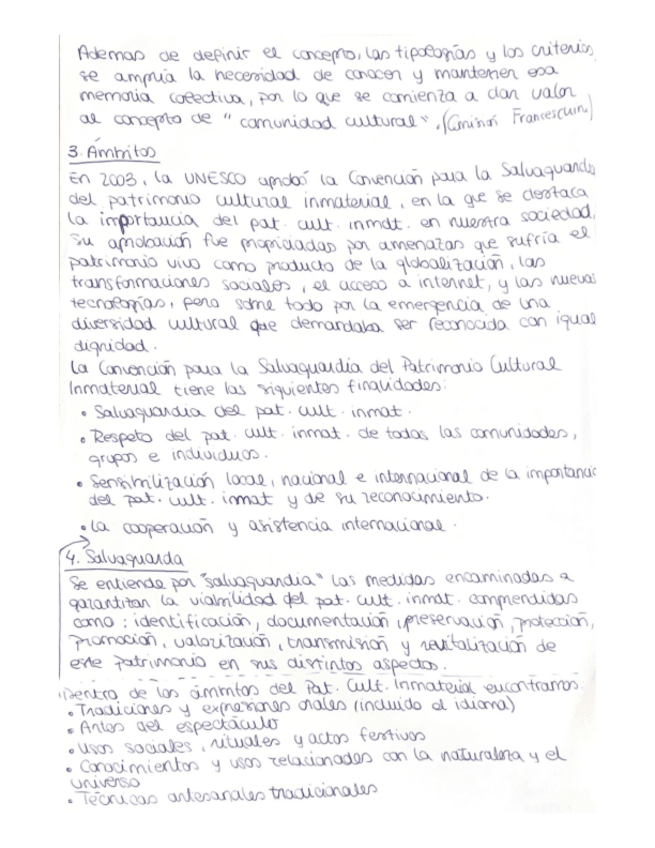 Ademas de definir el concepto, las tipologías y los criterios
se amplia la necesidad de conocer y mantener esa
memoria colectiva, por lo que se comienza a dar valor
al concepto de "comunidad cultural".
3. Ámbitos
En 2003, la UNESCO aprobó la Convención para la Salvaguarda
del patrimonio cultural inmaterial, en la que se destaca
la importancia del pat. cult. inmat. en nuestra sociedad.
Su aprobación fue propiciadas por amenazas que sufría el
patrimonio vivo como producto de la globalización, las
transformaciones sociales, el acceso a internet, y las nuevas
tecnologías, pero sobre todo por la emergencia de una
diversidad cultural que demandaba ser reconocida con igual
dignidad.
La Convención para la Salvaguardia del Patrimonio Cultural
Inmaterial tiene las siguientes finalidades:
• Salvaguardia del pat. cult. inmat.
• Respeto del pat. cult. inmat. de todas las comunidades,
grupos e individuos.
• Sensibilización local, nacional e internacional de la importancia
del pat. cult. inmat y de su reconocimiento.
• La cooperación y asistencia internacional.
4. Salvaguarda
Se entiende por "salvaguardia" las medidas encaminadas a
garantizar la viabilidad del pat. cult. inmat. comprendidas
como: identificación, documentación, preservación, protección,
promoción, valorización, transmisión y revitalización de
este patrimonio en sus distintos aspectos.
Dentro de los ámbitos del Pat. Cult. Inmaterial encontramos:
• Tradiciones y expresiones orales (incluido el idioma)
• Artes del espectáculo
• Usos sociales, rituales y actos festivos
• Conocimientos y usos relacionados con la naturaleza y el
universo
• Técnicas artesanales tradicionales